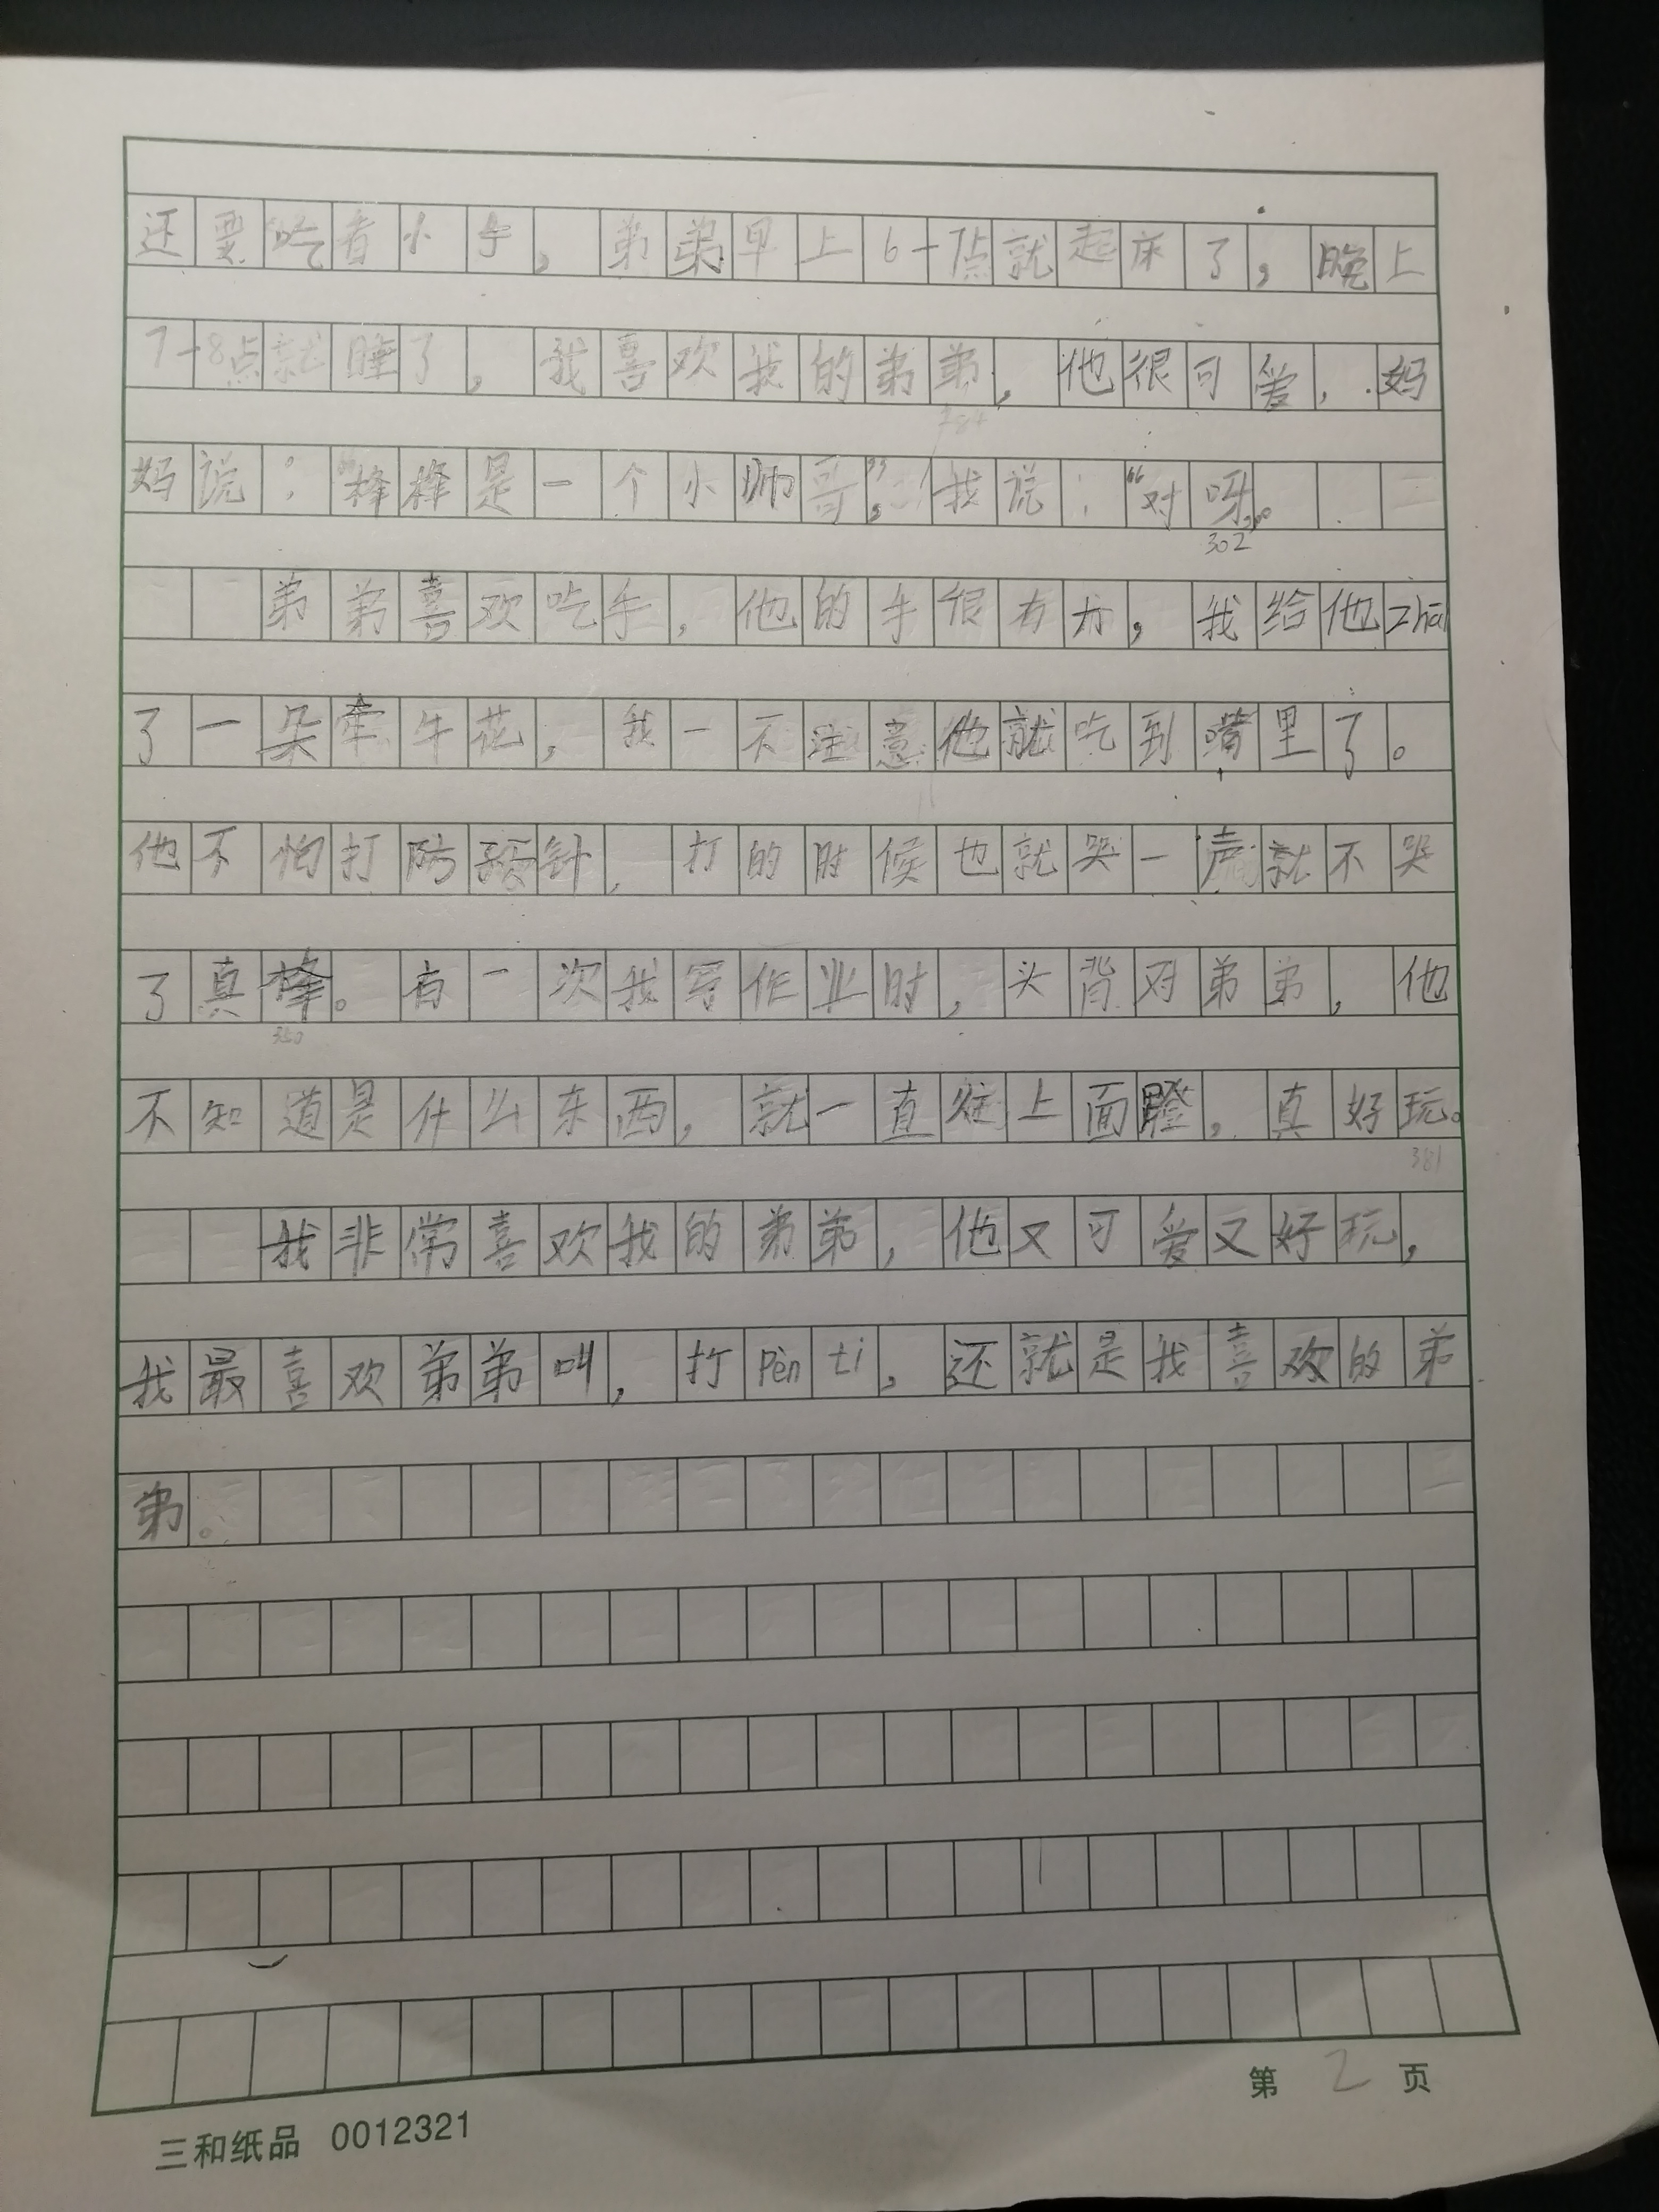 还要吃着小手，弟弟早上6-7点就起床了，晚上
7-8点就睡了，我喜欢我的弟弟，他很可爱，妈
284
妈说：“棒棒是一个小帅哥”。我说：“对呀。”
302
弟弟喜欢吃手，他的手很有力，我给他zhāi
了一朵牵牛花，我一不注意他就吃到嘴里了。
他不怕打防预针，打的时候也就哭一声就不哭
了真棒。有一次我写作业时，头背对弟弟，他
350
不知道是什么东西，就一直往上面瞪，真好玩。
381
我非常喜欢我的弟弟，他又可爱又好玩，
我最喜欢弟弟叫，打pèn tì，还就是我喜欢的弟
弟。
第 2 页
三和纸品 0012321